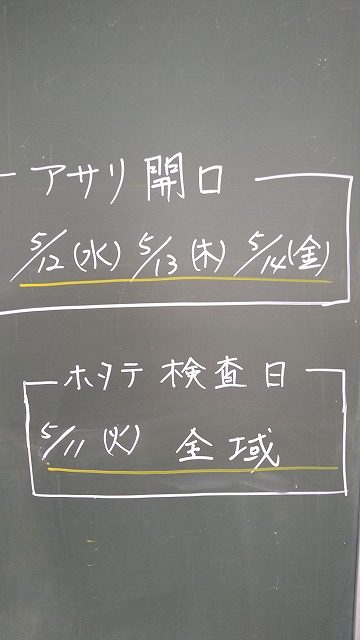 アサリ開口
5/12(水) 5/13(木) 5/14(金)
ホタテ 検査日
5/11(火) 全域